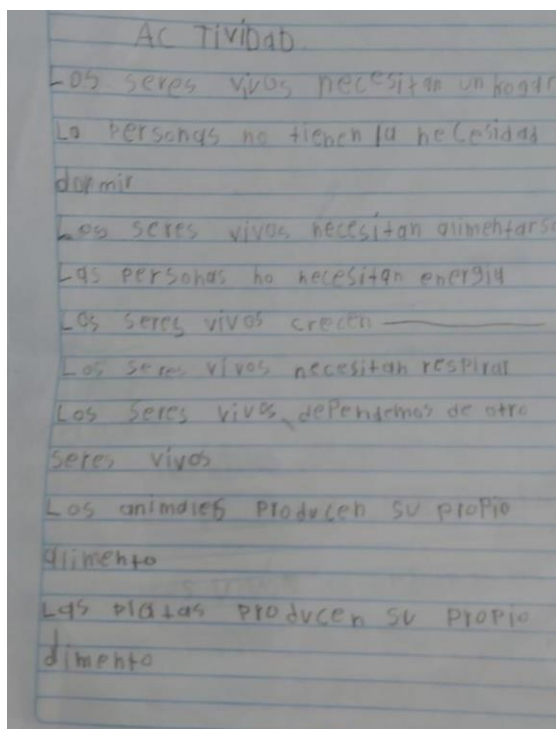 AC TIVIDAD
Los seres vivos necesitan un hogar
La personas no tienen la necesidad
dormir
Los seres vivos necesitan alimentarse
Las personas no necesitan energia
Los seres vivos crecen
Los seres vivos necesitan respirar
Los seres vivos dependemos de otro
seres vivos
Los animales producen su propio
alimento
Las platas producen su propio
alimento